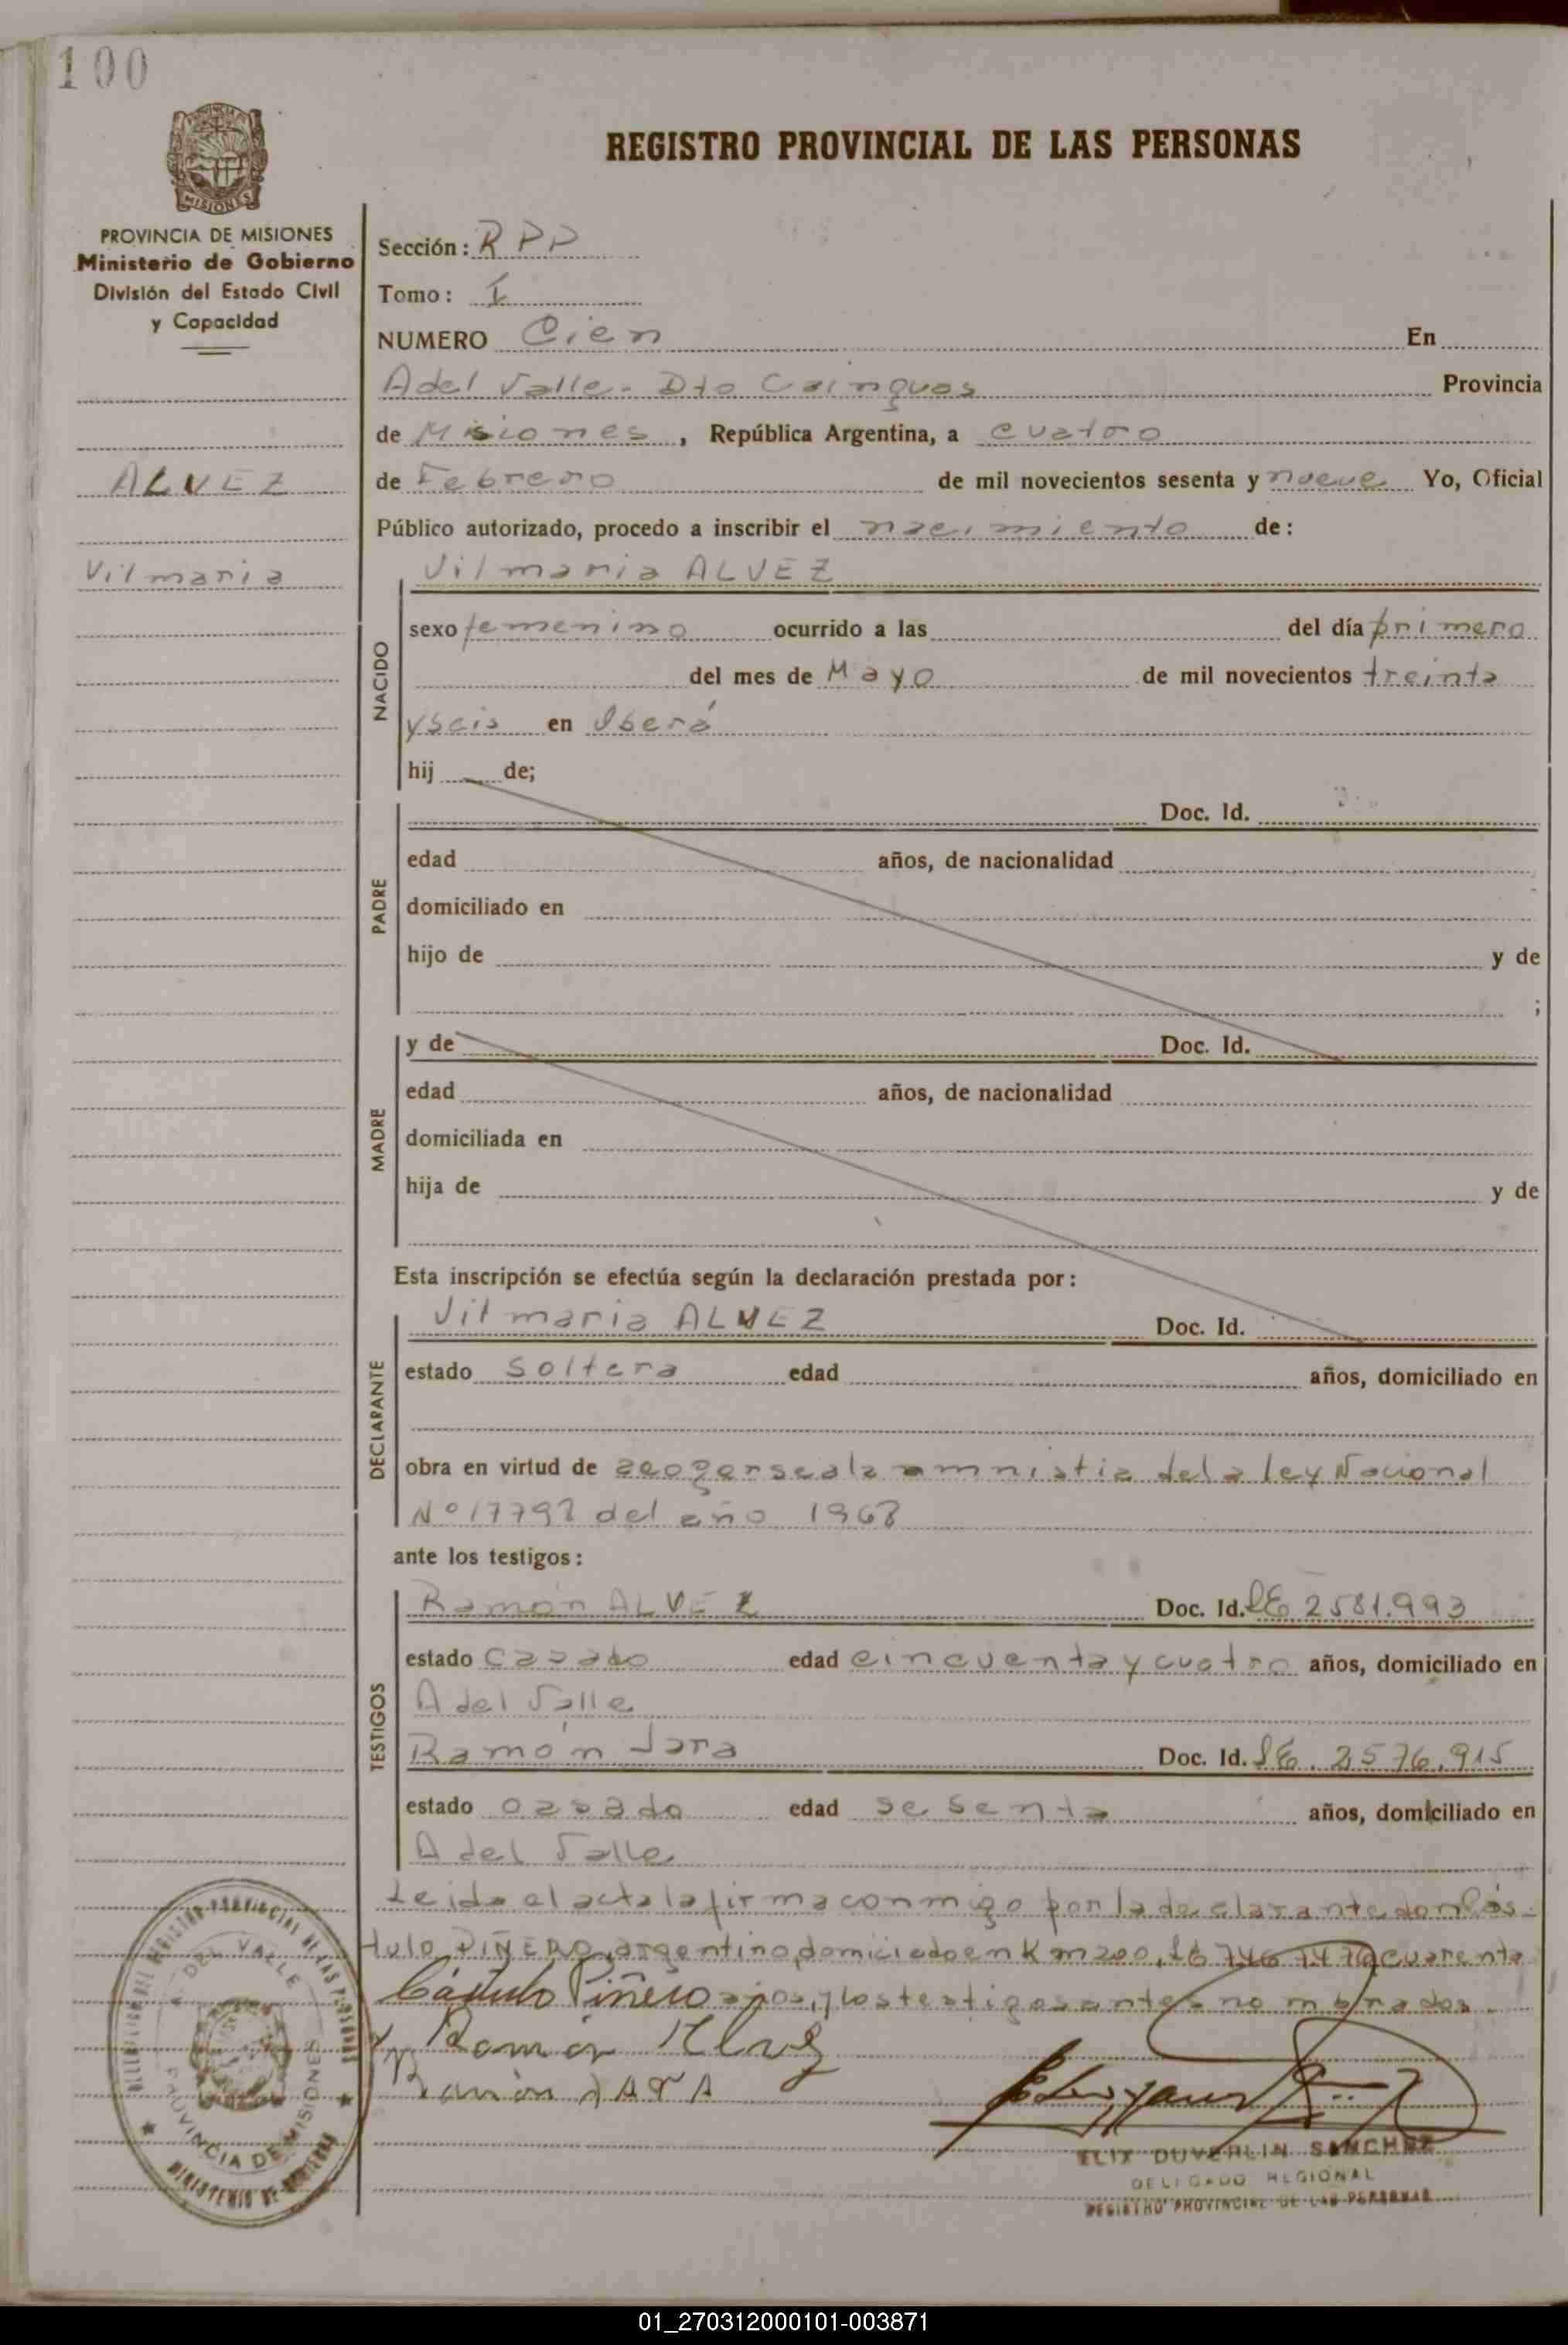 100
REGISTRO PROVINCIAL DE LAS PERSONAS
MISIONES
PROVINCIA DE MISIONES
Ministerio de Gobierno
División del Estado Civil
y Capacidad
ALVEZ
Vilmaria
Sección: R P P
Tomo: I
NUMERO Cien En
A del Valle - Dto Cainguas Provincia
de Misiones, República Argentina, a cuatro
de Febrero de mil novecientos sesenta y nueve Yo, Oficial
Público autorizado, procedo a inscribir el nacimiento de:
NACIDO
Vilmaria ALVEZ
sexo femenino ocurrido a las del día primero
del mes de Mayo de mil novecientos treinta
y seis en Oberá
hij de;
PADRE
Doc. Id.
edad años, de nacionalidad
domiciliado en
hijo de y de
;
MADRE
y de Doc. Id.
edad años, de nacionalidad
domiciliada en
hija de y de
Esta inscripción se efectúa según la declaración prestada por:
DECLARANTE
Vilmaria ALVEZ Doc. Id.
estado soltera edad años, domiciliado en
obra en virtud de acogerse a la amnistia de la ley Nacional
Nº 17792 del año 1968
ante los testigos:
TESTIGOS
Ramón ALVEZ Doc. Id. LE 2581.993
estado casado edad cincuenta y cuatro años, domiciliado en
A del Valle
Ramón Jara Doc. Id. LE. 2576.915
estado casado edad sesenta años, domiciliado en
A del Valle
Leida el acta la firma conmigo por la declarante don Cás-
tulo PIÑERO, argentino, domiciliado en Km 200, cuarenta
Cástulo Piñero años, y los testigos antes nombrados.
Ramón Alvez
Ramón JARA
ELIX DUVERLIN SANCHEZ
DELEGADO REGIONAL
REGISTRO PROVINCIAL DE LAS PERSONAS
REGISTRO PROVINCIAL DE LAS PERSONAS
A. DEL VALLE
PROVINCIA DE MISIONES
MINISTERIO DE GOBIERNO
01_270312000101-003871